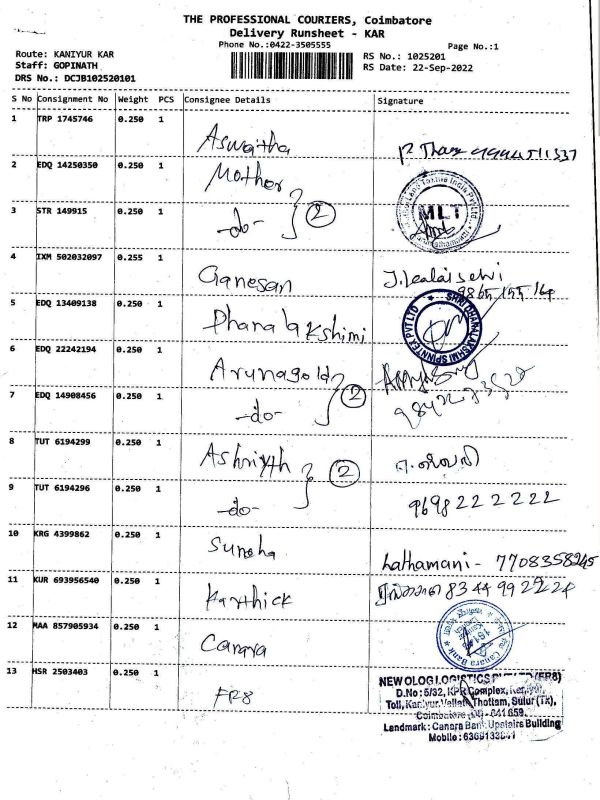 THE PROFESSIONAL COURIERS, Coimbatore
Delivery Runsheet - KAR
Phone No.:0422-3505555
Page No.:1
Route: KANIYUR KAR
RS No.: 1025201
Staff: GOPINATH
RS Date: 22-Sep-2022
DRS No.: DCJB102520101
S No Consignment No Weight PCS Consignee Details Signature
1 TRP 1745746 0.250 1
Aswaitha
2 EDQ 14250350 0.250 1
Mother
3 STR 149915 0.250 1
-do- 2
MLT
4 IXM 502032097 0.255 1
Ganesan
5 EDQ 13409138 0.250 1
Dhanalakshimi
SHRI DHANALAKSHMI SPINNTEX PVT LTD
6 EDQ 22242194 0.250 1
Arunagold
7 EDQ 14908456 0.250 1
-do- 2
8 TUT 6194299 0.250 1
Ashriyth
9 TUT 6194296 0.250 1
-do- 2
9698 22 2 2 2 2
10 KRG 4399862 0.250 1
Suneha
Lathamani - 7708358245
11 KUR 693956540 0.250 1
Karthick
8344 99 2224
12 MAA 857905934 0.250 1
Canara
Canara Bank
13 HSR 2503403 0.250 1
FR8
NEW OLOG LOGISTICS PVT LTD (FR8)
D.No : 5/32, KPR Complex,
Toll, Kaniyur, Thottam, Sulur (TK),
Coimbatore - 641 659.
Landmark : Canara Bank Upstairs Building
Mobile :